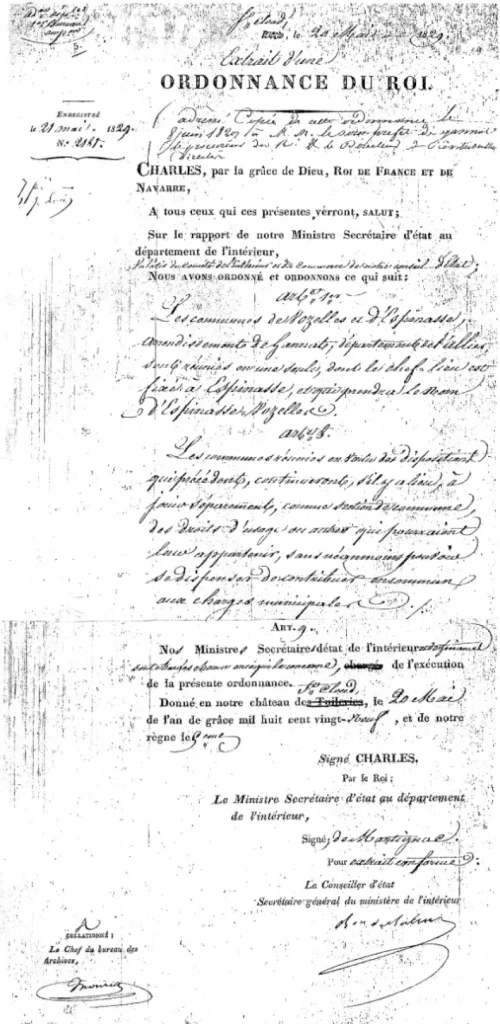 St Cloud,
Paris, le 20 Mai 1829.
Extrait d'une
ORDONNANCE DU ROI.
ENREGISTRÉ
le 21 mai 1829
N.° 2181.
adressé Copie de cette ordonnance le
8 juin 1829 à M. M. le sous préfet de Gannat
le procureur du Roi & le Directeur
CHARLES, par la grâce de Dieu, ROI DE FRANCE ET DE
NAVARRE,
A tous ceux qui ces présentes verront, SALUT;
Sur le rapport de notre Ministre Secrétaire d'état au
département de l'intérieur,
NOUS AVONS ORDONNÉ et ORDONNONS ce qui suit:
art. 1er
Les communes de Nozelles et d'Espinasse,
arrondissement de Gannat, département de l'allier
sont réunies en une seule, dont le chef-lieu est
fixé à Espinasse, et qui prendra le nom
d'Espinasse Nozelles.
art. 8.
Les communes réunies en vertu des dispositions
qui précèdent, continueront, s'il y a lieu, à
jouir séparément, comme section de commune,
des droits d'usage ou autres qui pourraient
leur appartenir, sans néanmoins pouvoir
se dispenser de contribuer en commun
aux charges municipales.
ART. 9.
Nos Ministres Secrétaires d'état de l'intérieur
sont chargés chacun en ce qui le concerne, chargé de l'exécution
de la présente ordonnance.
St Cloud,
Donné en notre château des Tuileries, le 20 Mai
de l'an de grâce mil huit cent vingt-Neuf, et de notre
règne le 5eme
Signé CHARLES.
Par le Roi:
Le Ministre Secrétaire d'état au département
de l'intérieur,
Signé; de Martignac.
Pour extrait conforme:
Le Conseiller d'état
Secrétaire général du ministère de l'intérieur
COLLATIONNÉ:
Le Chef du bureau des
Archives,